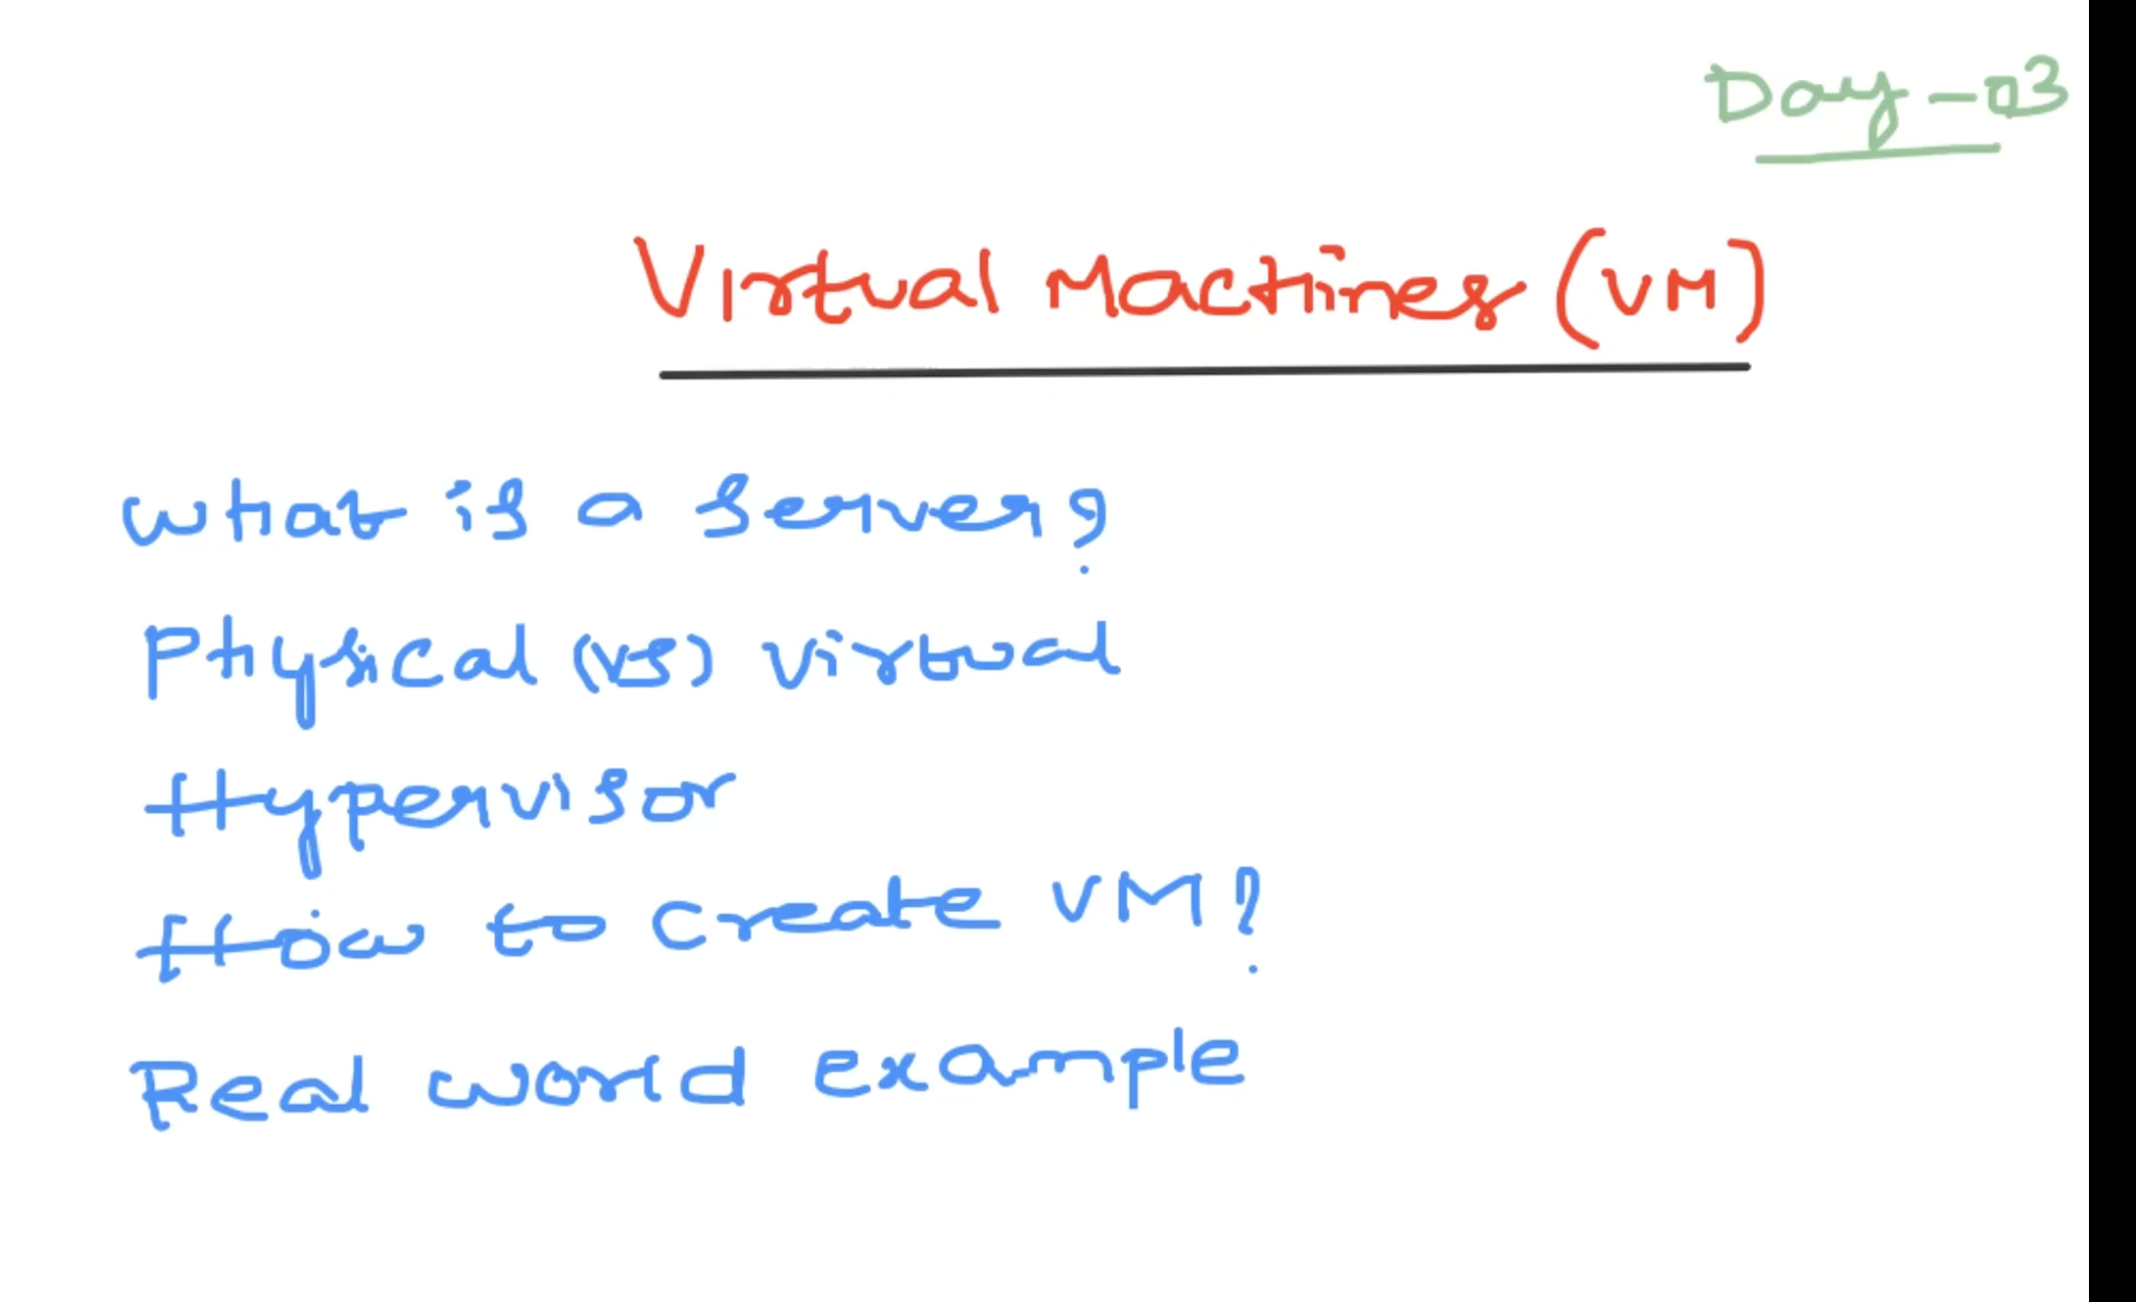 Day-03
Virtual Machines (VM)
What is a Server?
Physical (vs) Virtual
Hypervisor
How to Create VM?
Real world Example